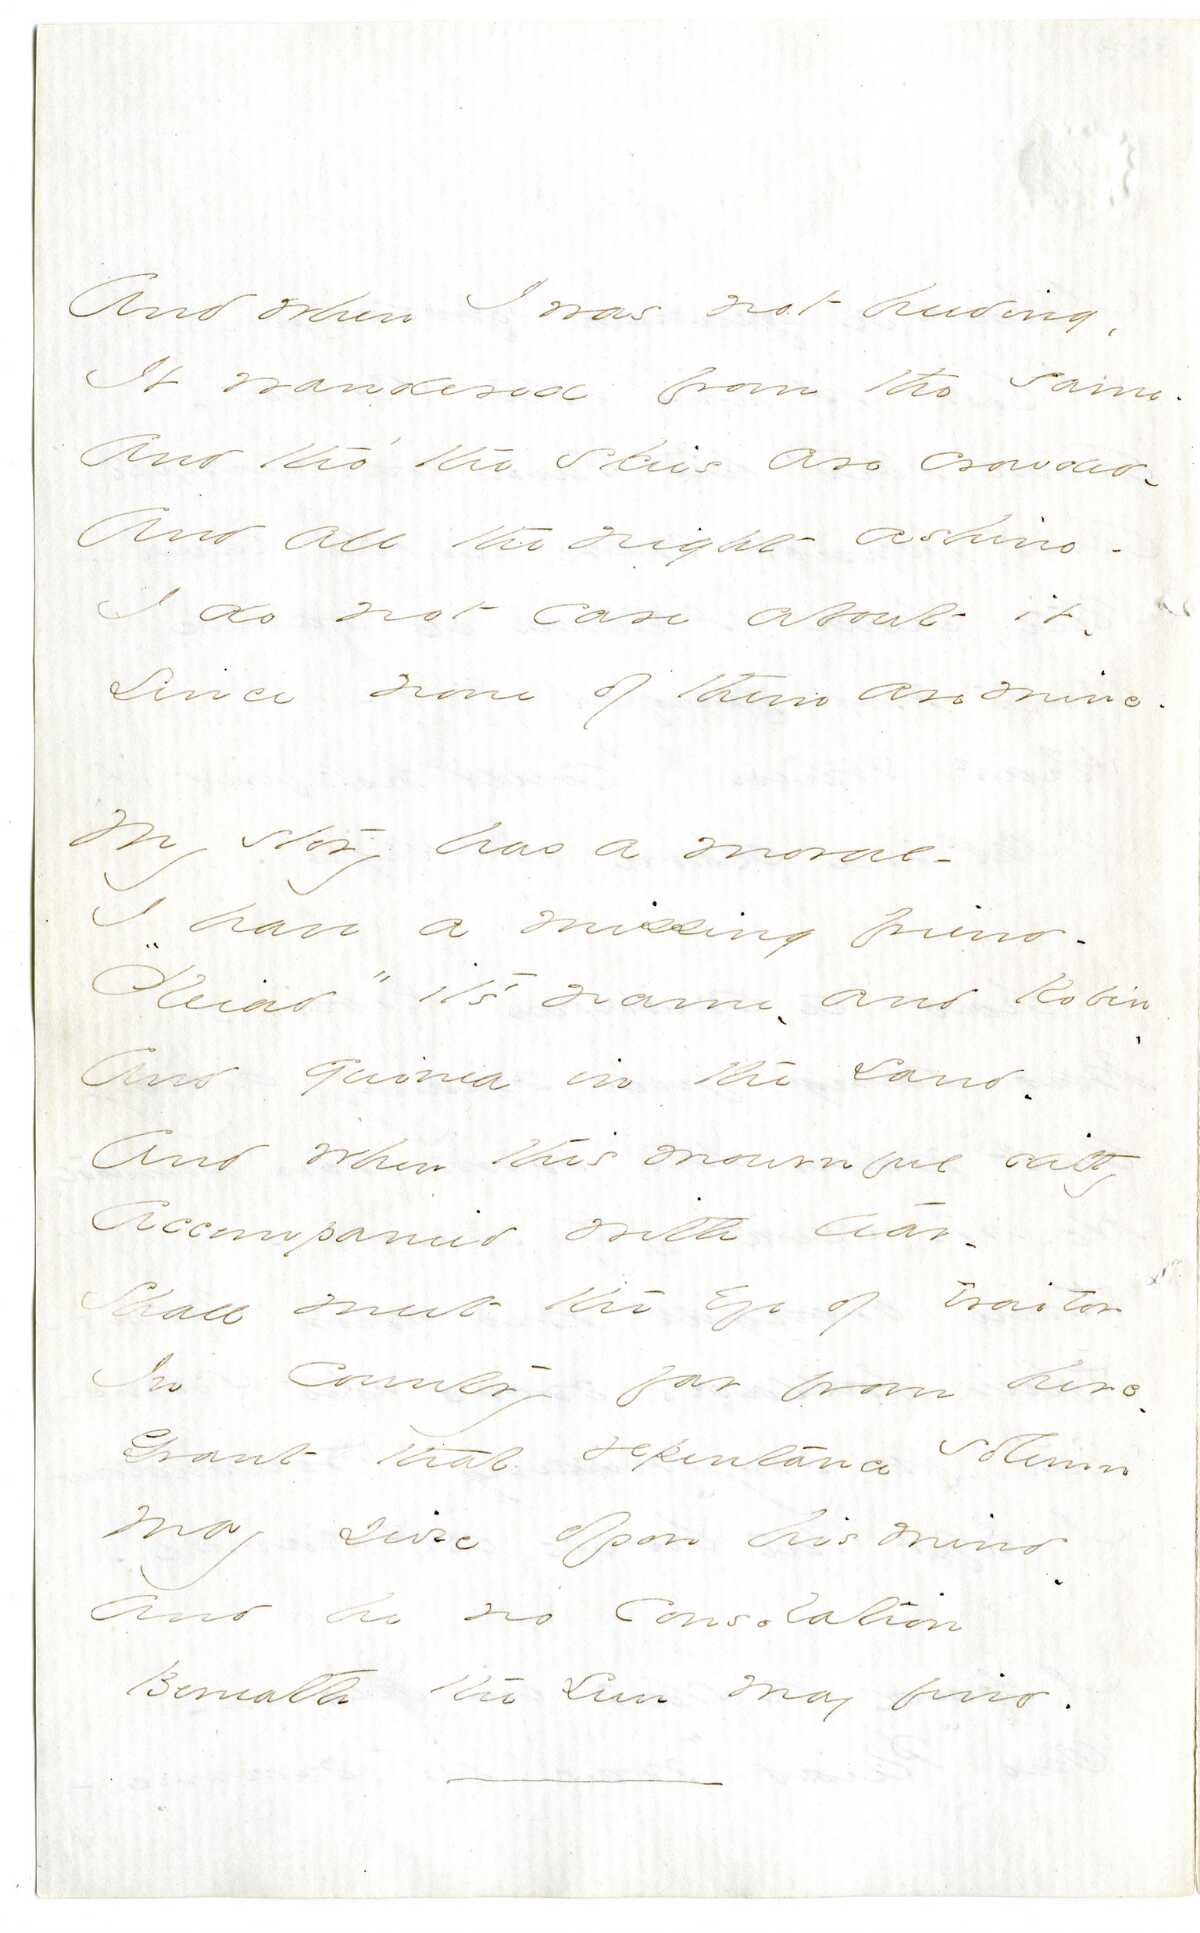 And when I was not heeding,
It wandered from the same -
And tho' the skies are crowded -
And all the night ashine -
I do not care about it -
Since none of them are mine -
My story has a moral -
I have a missing friend -
"Pleiad" it's name, and Robin,
And guinea in the sand.
And when this mournful ditty
Accompanied with tear -
Shall meet the Eye of traitor
In Country far from here -
Grant that repentance solemn
May seize opon his mind
And he no Consolation
Beneath the Sun may find.